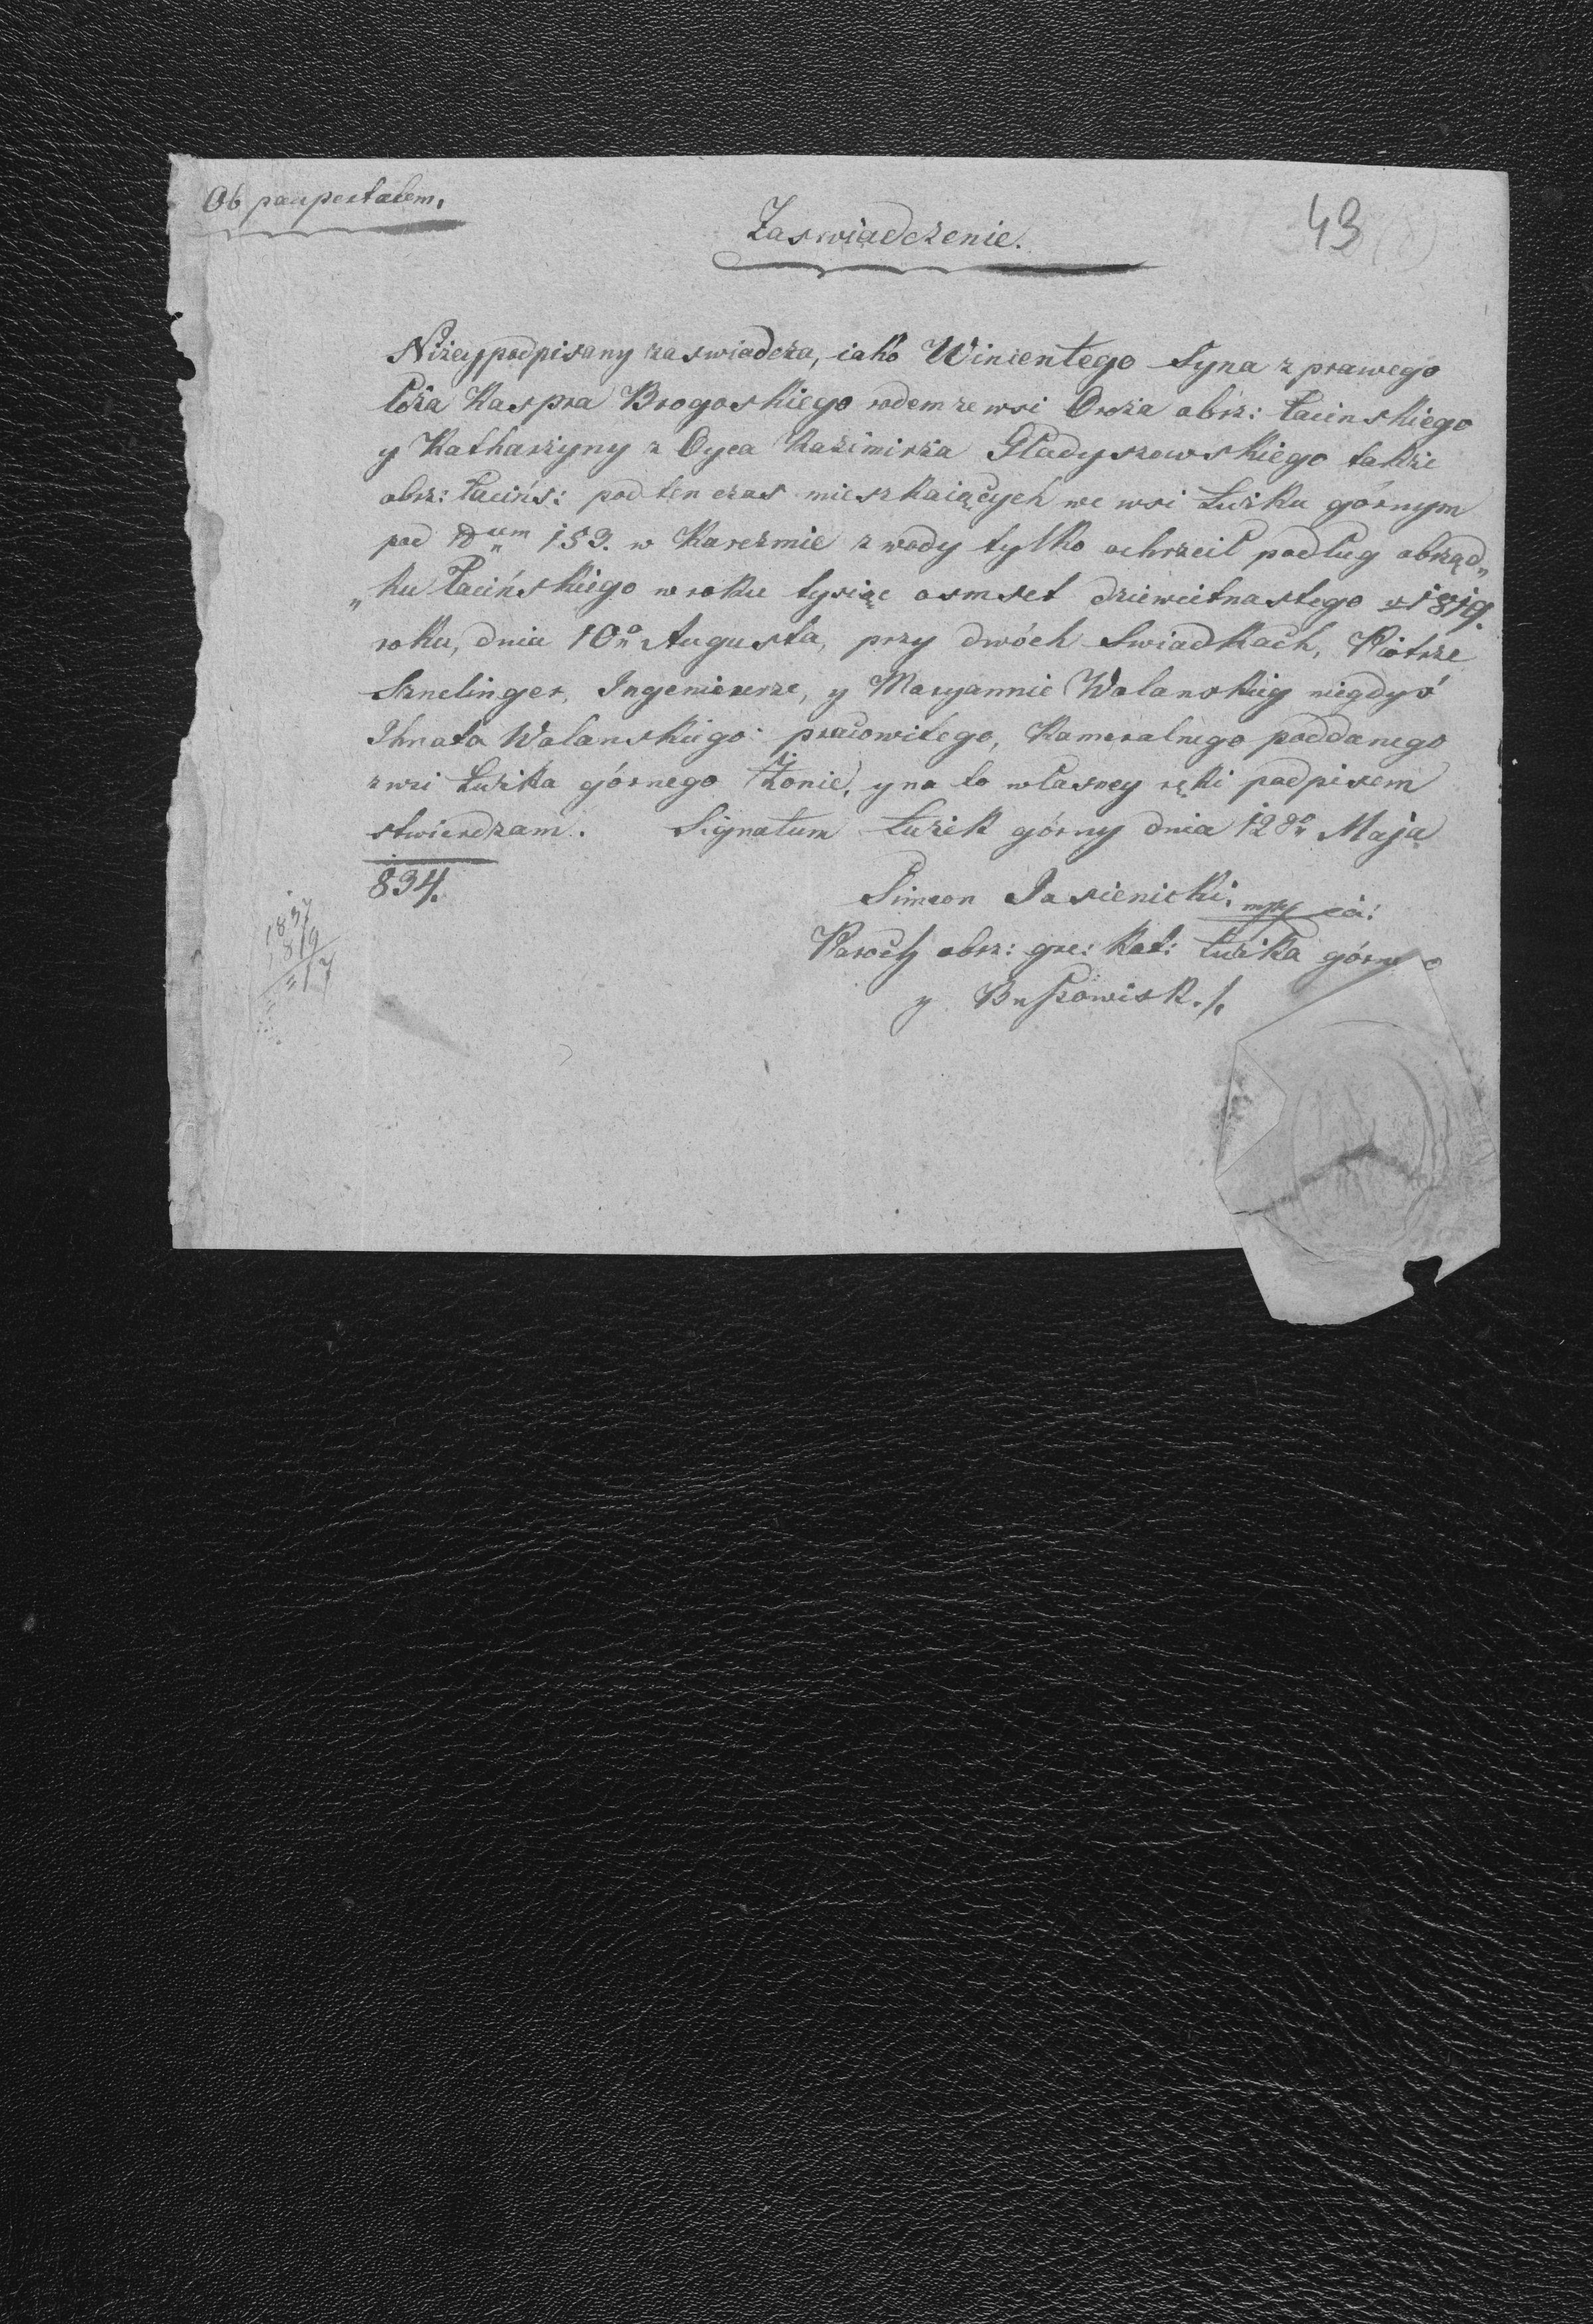 Ob paupertatem.
43
Zaswiadczenie.
Niżey podpisany zaswiadcza, iako Winzentego Syna z prawego
łoża Kaspra Brogoskiego rodem ze wsi obrz: Łacinskiego
y Katharzyny z Oyca Kazimirza Gładyszowskiego także
obrz: Łacińs: pod ten czas mieszkaiących we wsi Łużku górnym
pod 153. w Karczmie z wody tylko ochrzcił podług obrząd„
„ku Łacińskiego w roku tysiąc osmset dziewietnastego 1819.
roku, dnia 10° Augusta, przy dwóch Swiadkach, Piotrze
Sznelinger, Ingenieurze, y Maryannie Walanskiy niegdyś
Ihnata Walanskiego pracowitego, Kameralnego poddanego
z wsi Łużka górnego Żonie, y na to własney ręki podpisem
stwierdzam. Signatum Łużek górny dnia 12 Maja
834.
Simeon Jasienicki mp
Paroch obrz: gre: kat: Łużka górnego
y Busowisk./.
1837
1819
17